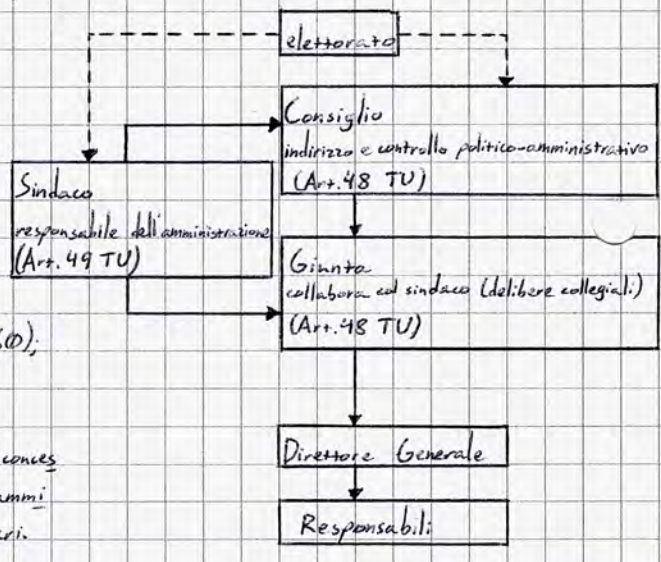 elettorato
Consiglio
indirizzo e controllo politico-amministrativo
(Art. 48 TU)
Sindaco
responsabile dell'amministrazione
(Art. 49 TU)
Giunta
collabora col sindaco (delibere collegiali)
(Art. 48 TU)
conces
ammi
ri.
Direttore Generale
Responsabili